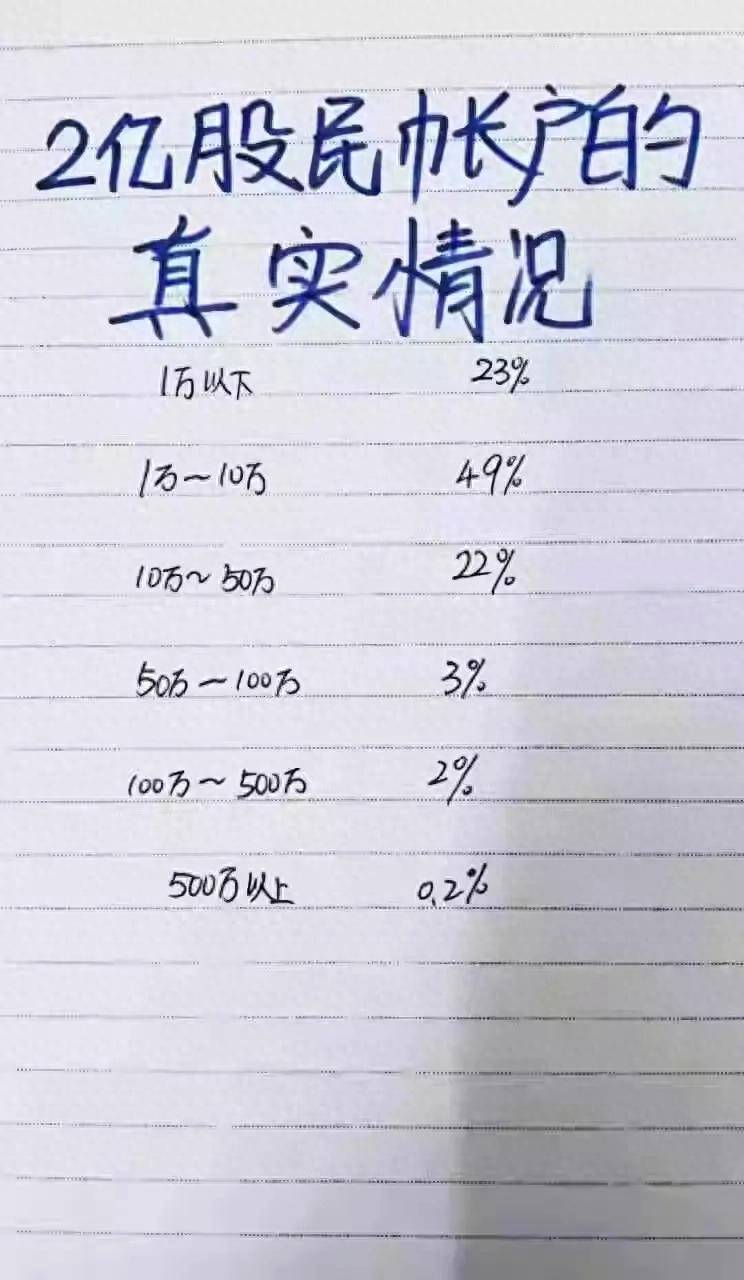 2亿股民帐户的
真实情况
1万以下 23%
1万~10万 49%
10万~50万 22%
50万~100万 3%
100万~500万 2%
500万以上 0.2%